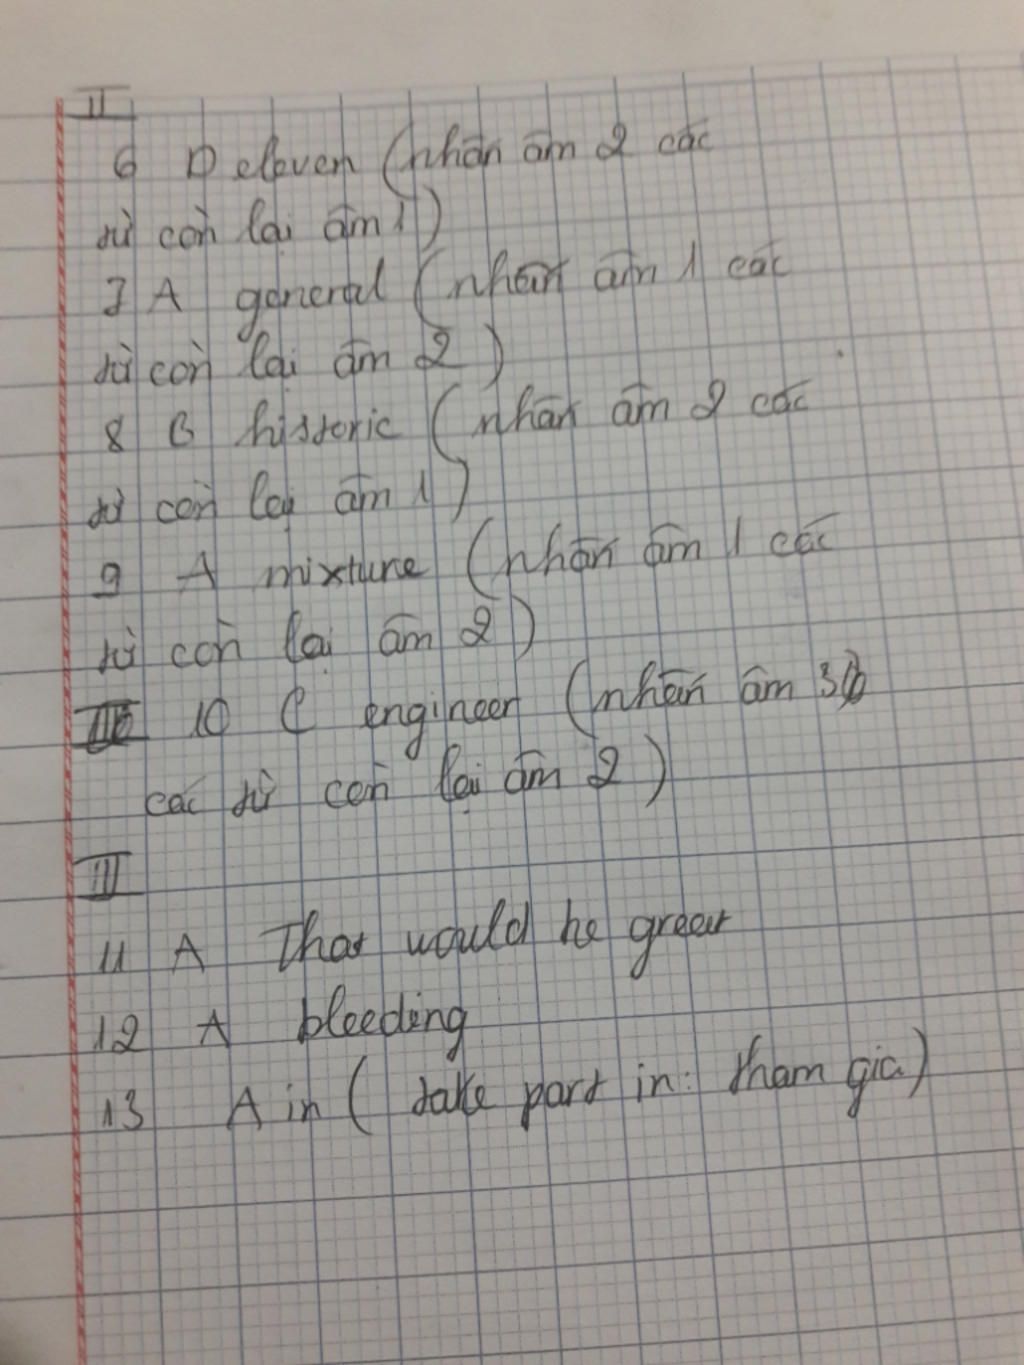 II
6 D eleven (nhấn âm 2 các
từ còn lại âm 1)
7 A general (nhấn âm 1 các
từ còn lại âm 2)
8 B historic (nhấn âm 2 các
từ còn lại âm 1)
9 A mixture (nhấn âm 1 các
từ còn lại âm 2)
10 C engineer (nhấn âm 3
các từ còn lại âm 2)
III
11 A That would be great
12 A bleeding
13 A in ( take part in: tham gia)